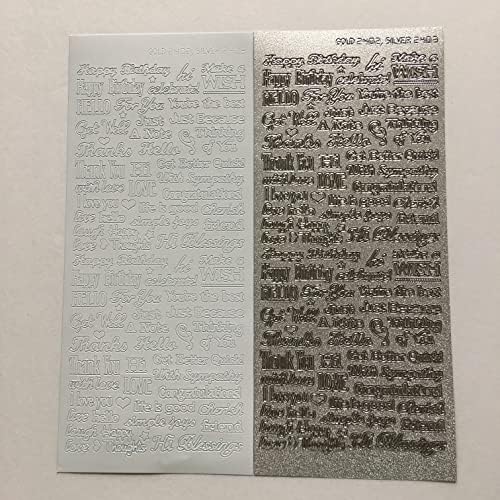 GOLD 2402, SILVER 2403
Happy Birthday hi Make a
Happy Birthday celebrate! WISH
HELLO For You You're the best
Get Well Just Just Because
A Note Thinking
Thanks Hello of You
Thank You Hi Get Better Quick!
with love LOVE With Sympathy
I love you Congratulations!
love hello life is good Cherish
laugh Happy simple joys friend
love Thoughts Hi Blessings
Happy Birthday hi Make a
Happy Birthday celebrate! WISH
HELLO For You You're the best
Get Well Just Just Because
A Note Thinking
Thanks Hello of You
Thank You Hi Get Better Quick!
with love LOVE With Sympathy
I love you Congratulations!
love hello life is good Cherish
laugh Happy simple joys friend
love Thoughts Hi Blessings
GOLD 2402, SILVER 2403
Happy Birthday hi Make a
Happy Birthday celebrate! WISH
HELLO For You You're the best
Get Well Just Just Because
A Note Thinking
Thanks Hello of You
Thank You Hi Get Better Quick!
with love LOVE With Sympathy
I love you Congratulations!
love hello life is good Cherish
laugh Happy simple joys friend
love Thoughts Hi Blessings
Happy Birthday hi Make a
Happy Birthday celebrate! WISH
HELLO For You You're the best
Get Well Just Just Because
A Note Thinking
Thanks Hello of You
Thank You Hi Get Better Quick!
with love LOVE With Sympathy
I love you Congratulations!
love hello life is good Cherish
laugh Happy simple joys friend
love Thoughts Hi Blessings